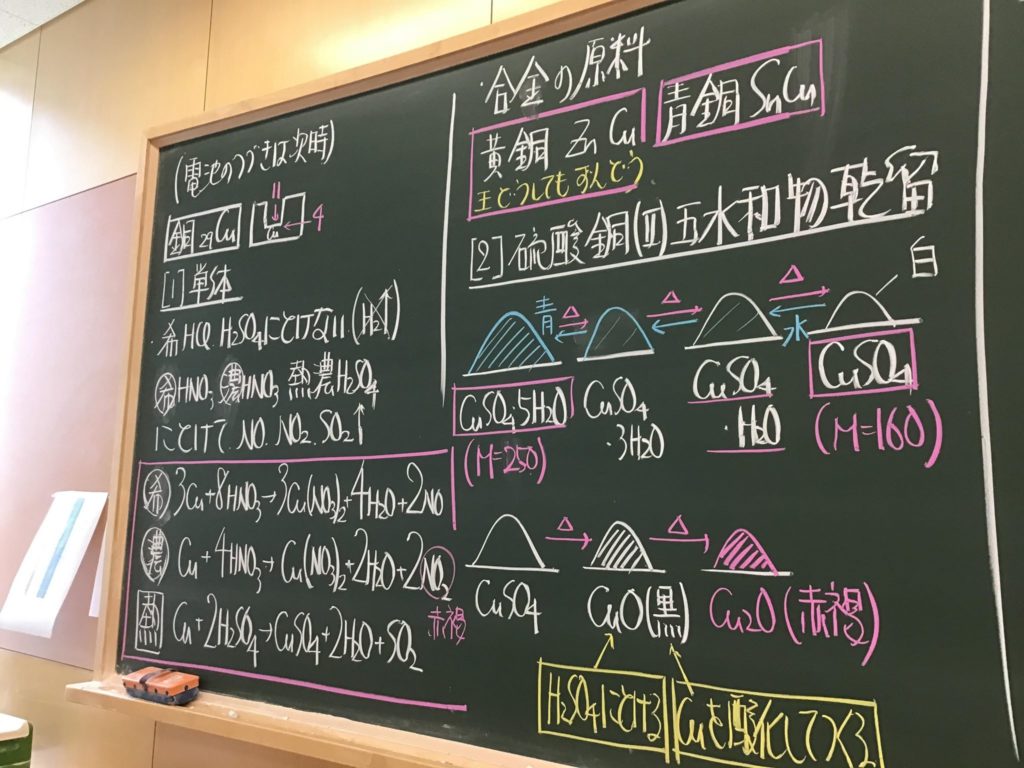 (電池のつづきは次時)
銅 29Cu
Cu
4
[1] 単体
・希HCl, H2SO4にとけない(H2↑)
希HNO3 濃HNO3 熱濃H2SO4
にとけて、NO, NO2, SO2↑
希 3Cu+8HNO3→3Cu(NO3)2+4H2O+2NO
濃 Cu+4HNO3→Cu(NO3)2+2H2O+2NO2
赤褐
熱 Cu+2H2SO4→CuSO4+2H2O+SO2
・合金の原料
黄銅 Zn Cu
青銅 Sn Cu
[2] 硫酸銅(II)五水和物乾留
青 Δ Δ Δ 水 白
CuSO4・5H2O
(M=250)
CuSO4
・3H2O
CuSO4
・H2O
CuSO4
(M=160)
Δ Δ
CuSO4 CuO(黒) Cu2O(赤褐)
H2SO4にとける
Cuを酸化してつくる